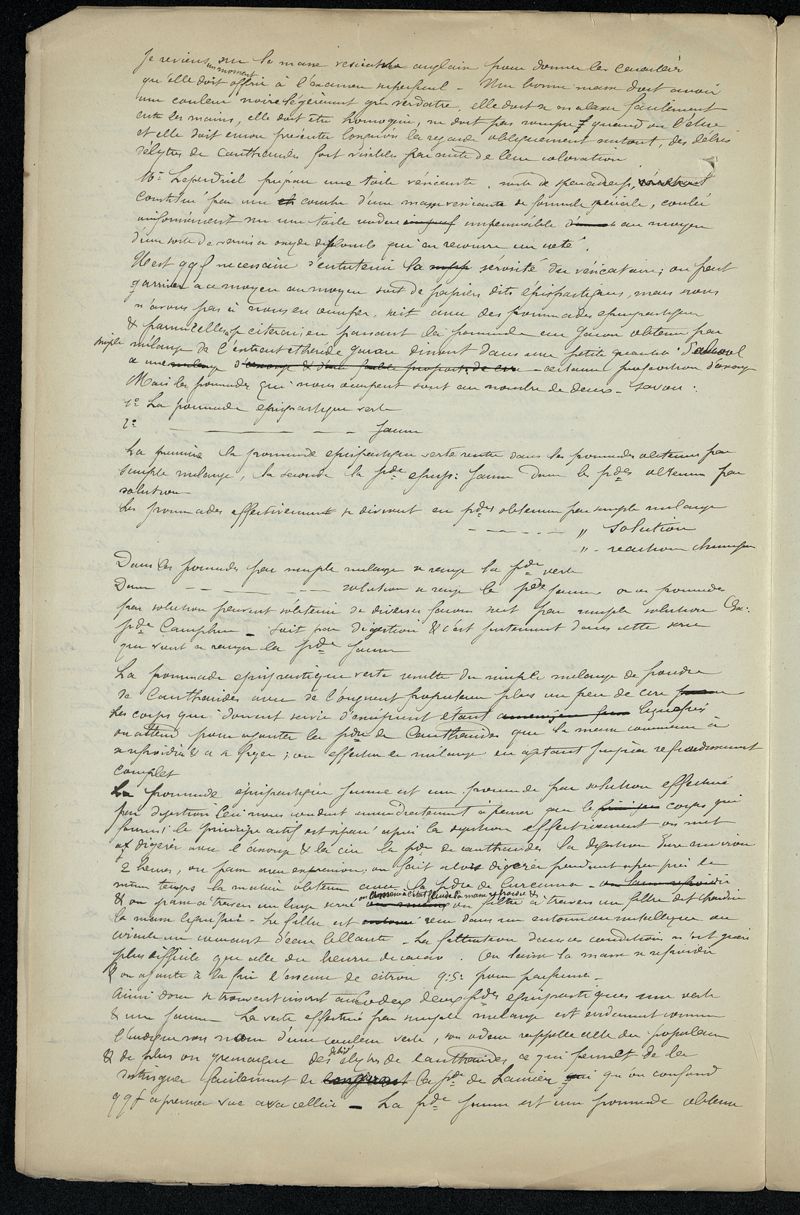 Je reviens un moment sur la masse vésicante anglaise pour donner les caractères
qu'elle doit offrir à l'examen superficiel - Une bonne masse doit avoir
une couleur noire légèrement grise verdâtre, elle doit se malaxer facilement
entre les mains, elle doit être homogène, ne doit pas rompre quand on l'étire
et elle doit encore présenter lorsqu'on la regarde obliquement surtout, des débris
d'élytres de cantharides fort visibles par suite de leur coloration
Mr Leperdriel prépare une toile vésicante, sorte de sparadrap,
constitué par une couche d'une masse vésicante de formule spéciale, coulée
uniformément sur une toile rendue imperméable au moyen
d'une sorte de vernis à oxyde de plomb qui en recouvre un côté.
Il est qqf nécessaire d'entretenir la sérosité du vésicatoire; on peut
y arriver au moyen au moyen soit de papiers dits épispastiques, mais nous
n'avons pas à nous en occuper, soit avec des pommades épispastiques
& parmi celles-ci citerai en passant la pommade au Garou obtenue par
simple mélange de l'extrait éthéré de garou dissout dans une petite quantité d'alcool
à une certaine proportion d'axonge
Mais les pommades qui nous occupent sont au nombre de deux - savoir:
1o La pommade épispastique verte
2o — — — — — — jaune
La première la pommade épispastique verte rentre dans les pommades obtenues par
simple mélange, la seconde la pde épisp: jaune dans les pdes obtenues par
solution
Les pommades effectivement se divisent en pdes obtenues par simple mélange
- - - - - " solution
" - réaction chimique
Dans les pommades par simple mélange se range la pde verte
Dans — — — — — solution se range la pde jaune or ces pommades
par solution peuvent s'obtenir de diverses façons soit par simple solution Ex:
pde Camphrée - soit par digestion & c'est justement dans cette série
que vient se ranger la pde jaune
La pommade épispastique verte résulte du simple mélange de poudre
de Cantharides avec de l'onguent populeum plus un peu de cire
Les corps qui doivent servir d'excipient étant liquéfiés
on attend pour ajouter la pdre de Cantharides que la masse commence à
refroidir & à se figer; on effectue le mélange en agitant jusqu'à refroidissement
complet
La pommade épispastique jaune est une pommade par solution effectuée
par digestion Ceci nous conduit immédiatement à penser que le corps qui
fournit le principe actif est séparé après la digestion effectivement on met
à digérer avec l'axonge & la cire la pdre de cantharides la digestion dure environ
2 heures, on passe avec expression, on fait alors digérer pendant à peu près le
même temps la matière obtenue avec la pdre de Curcuma -
& on passe à travers un linge serré on filtre à travers un filtre dit chaudin
la masse liquéfiée - Le filtre est mis dans un entonnoir métallique où
circule un courant d'eau bouillante - La filtration dans ces conditions n'est guère
plus difficile que celle du beurre de cacao. On laisse la masse se refroidir
& on ajoute à la fin l'essence de citron q.s: pour parfumer -
Ainsi donc se trouvent inscrit au Codex deux pdes épispastiques une verte
& une jaune La verte effectuée par simple mélange est évidemment comme
l'indique son nom d'une couleur verte, son odeur rappelle celle du populeum
& de plus on y remarque des débris d'élytres de cantharides ce qui permet de la
distinguer facilement de la pde de Laurier qu'on confond
qqf à première vue avec celle-ci - La pde jaune est une pommade obtenue